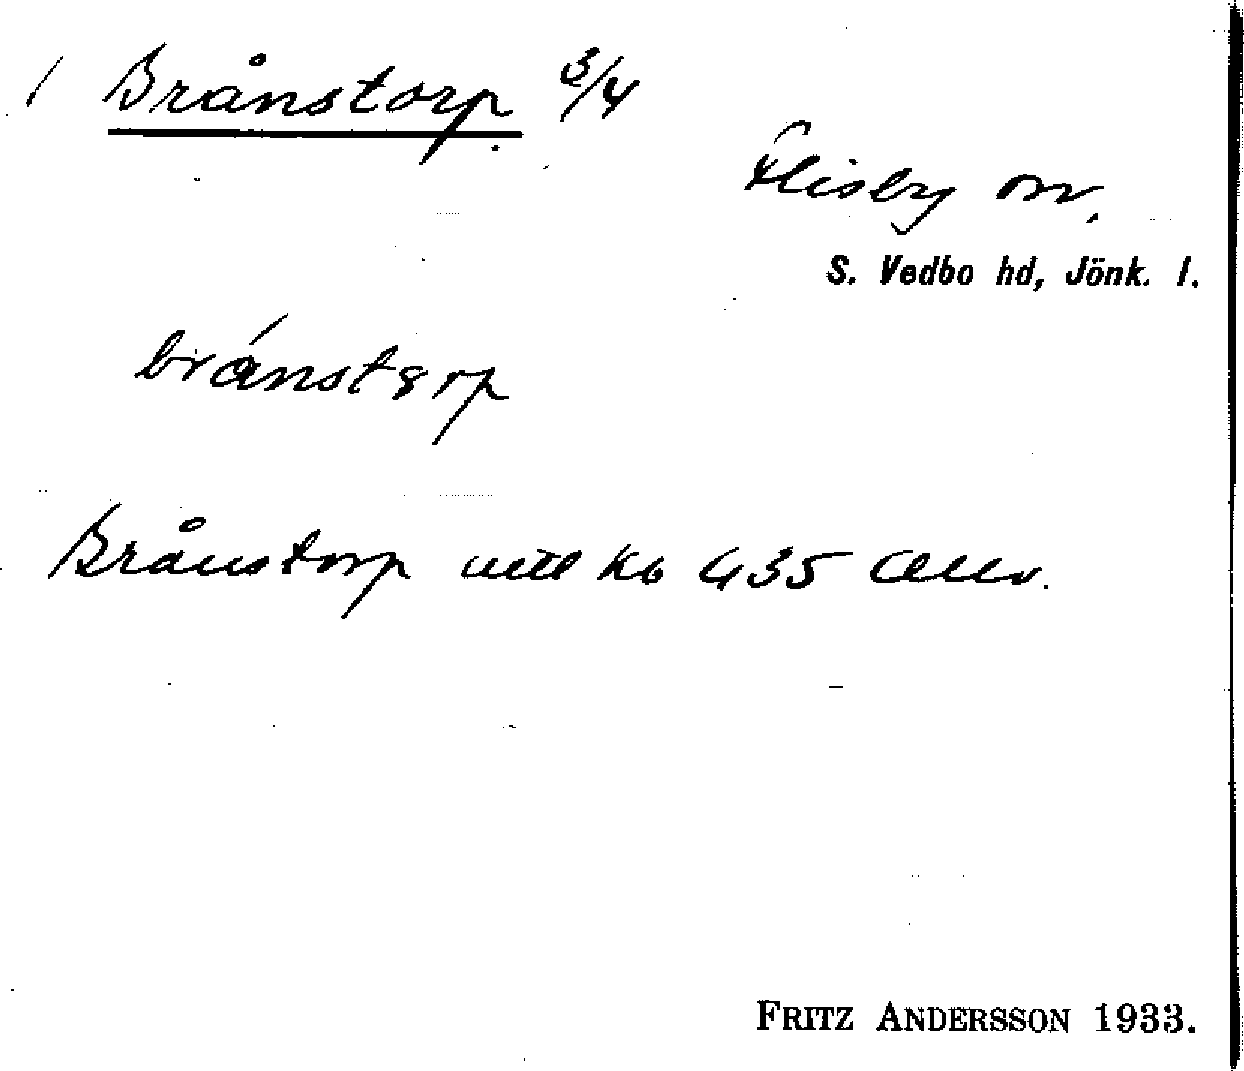 1 Brånstorp 3/4
Flisby sn.
S. Vedbo hd, Jönk. l.
bránstərp
Brånstorp uttl Kb 435 Allv.
FRITZ ANDERSSON 1933.